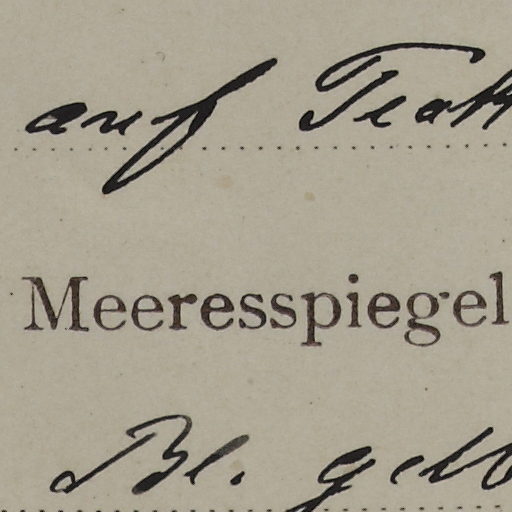 auf
Meeresspiegel
Bl. gelb